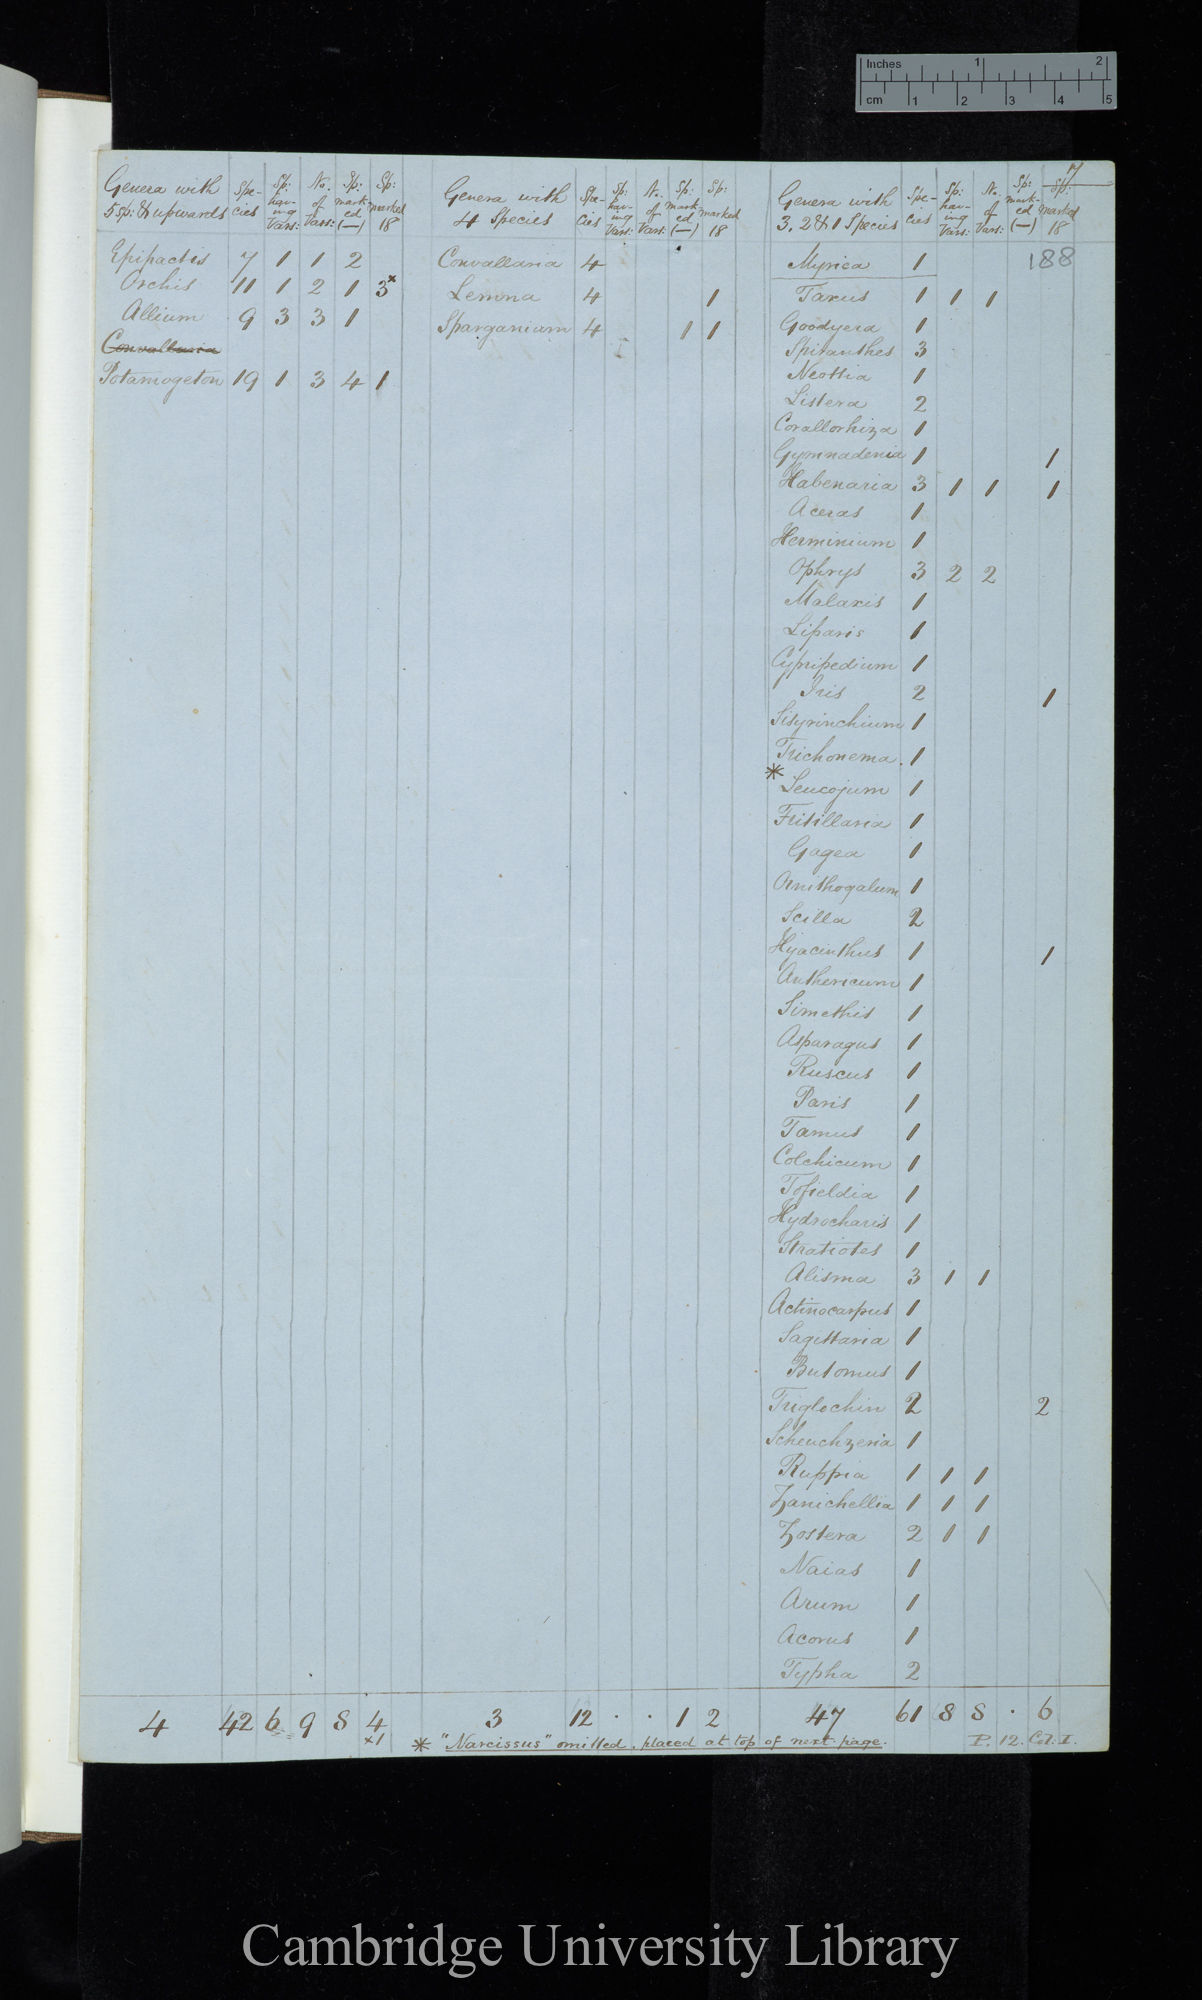 Inches 1 2
cm 1 2 3 4 5
7
188
Genera with 5 sp: & upwards | Species | Sp: having Vars: | No. of Vars: | Sp: marked (—) | Sp: marked 18
Epipactis 7 1 1 2
Orchis 11 1 2 1 3x
Allium 9 3 3 1
Convallaria
Potamogeton 19 1 3 4 1
4 42 6 9 8 4
x1
Genera with 4 Species | Species | Sp: having Vars: | No. of Vars: | Sp: marked (—) | Sp: marked 18
Convallaria 4
Lemna 4 1
Sparganium 4 1 1
3 12 . . 1 2
Genera with 3, 2 & 1 Species | Species | Sp: having Vars: | No. of Vars: | Sp: marked (—) | Sp: marked 18
Myrica 1
Taxus 1 1 1
Goodyera 1
Spiranthes 3
Neottia 1
Listera 2
Corallorhiza 1
Gymnadenia 1 1
Habenaria 3 1 1 1
Aceras 1
Herminium 1
Ophrys 3 2 2
Malaxis 1
Liparis 1
Cypripedium 1
Iris 2 1
Sisyrinchium 1
Trichonema 1
* Leucojum 1
Fritillaria 1
Gagea 1
Ornithogalum 1
Scilla 2
Hyacinthus 1 1
Anthericum 1
Simethis 1
Asparagus 1
Ruscus 1
Paris 1
Tamus 1
Colchicum 1
Tofieldia 1
Hydrocharis 1
Stratiotes 1
Alisma 3 1 1
Actinocarpus 1
Sagittaria 1
Butomus 1
Triglochin 2 2
Scheuchzeria 1
Ruppia 1 1 1
Zanichellia 1 1 1
Zostera 2 1 1
Naias 1
Arum 1
Acorus 1
Typha 2
47 61 8 8 . 6
* "Narcissus" omitted, placed at top of next page.
P. 12. Col: I.
Cambridge University Library